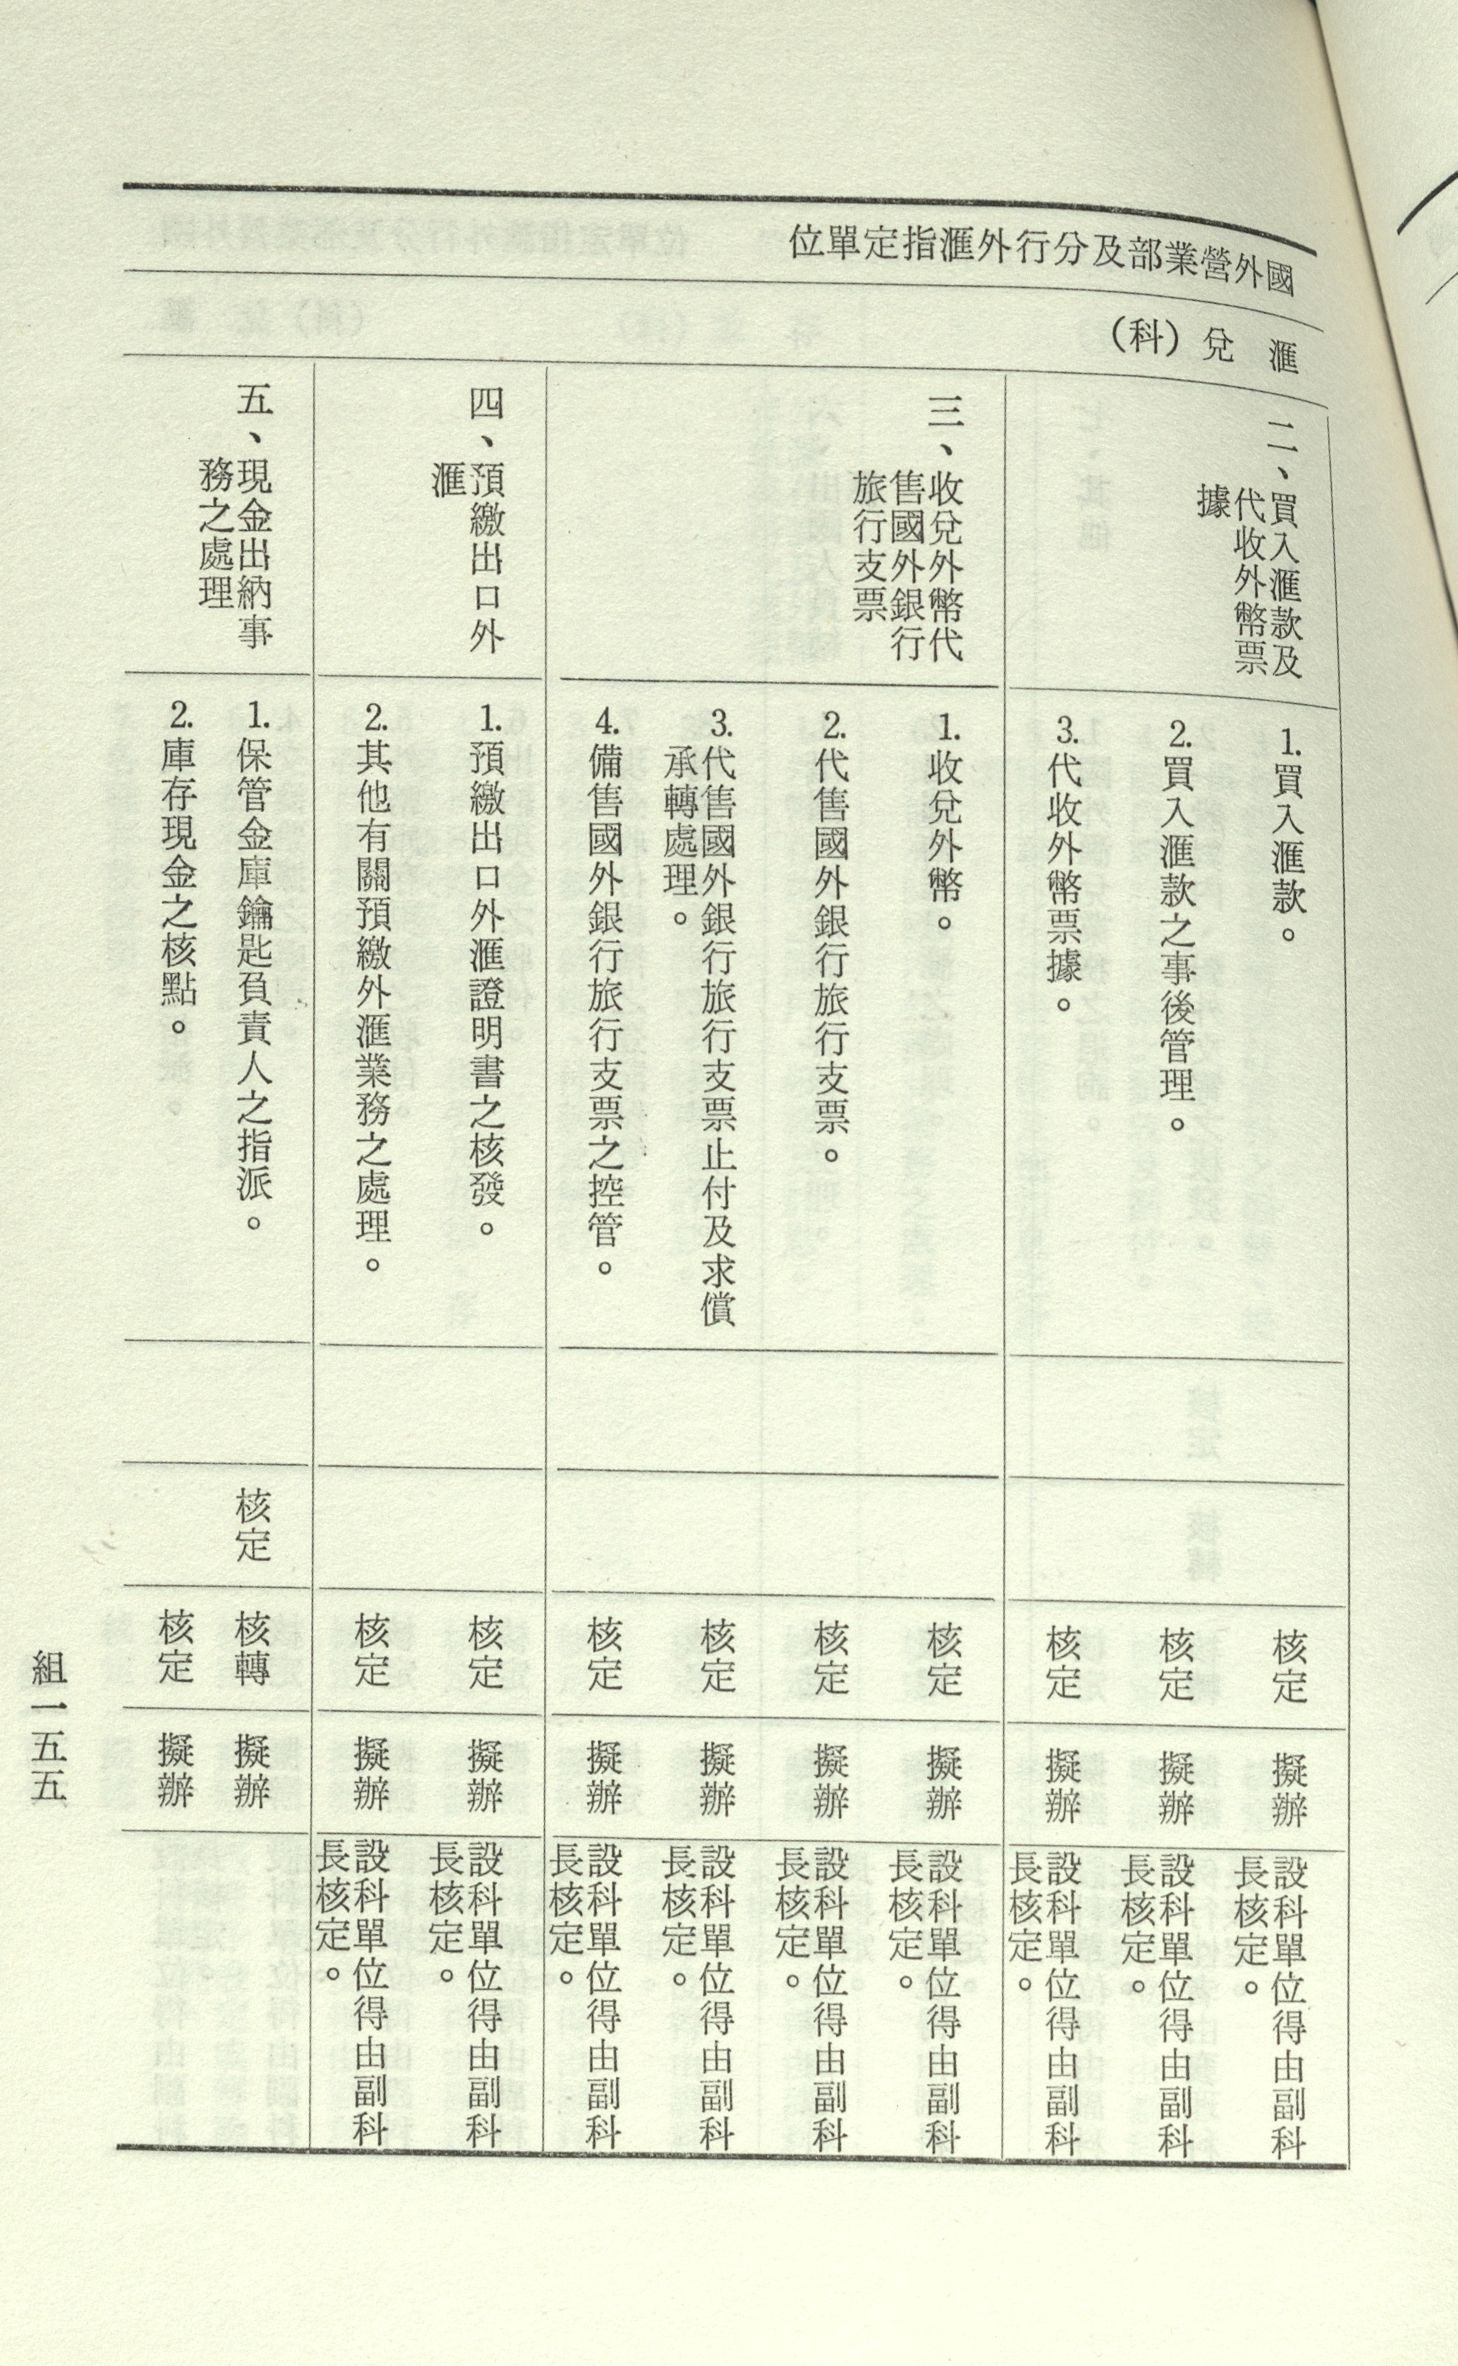 國外營業部及分行外滙指定單位
滙　兌（科）
二、買入滙款及
代收外幣票
據
1.買入滙款。
核定
擬辦
設科單位得由副科
長核定。
2.買入滙款之事後管理。
核定
擬辦
設科單位得由副科
長核定。
3.代收外幣票據。
核定
擬辦
設科單位得由副科
長核定。
三、收兌外幣代
售國外銀行
旅行支票
1.收兌外幣。
核定
擬辦
設科單位得由副科
長核定。
2.代售國外銀行旅行支票。
核定
擬辦
設科單位得由副科
長核定。
3.代售國外銀行旅行支票止付及求償
承轉處理。
核定
擬辦
設科單位得由副科
長核定。
4.備售國外銀行旅行支票之控管。
核定
擬辦
設科單位得由副科
長核定。
四、預繳出口外
滙
1.預繳出口外滙證明書之核發。
核定
擬辦
設科單位得由副科
長核定。
2.其他有關預繳外滙業務之處理。
核定
擬辦
設科單位得由副科
長核定。
五、現金出納事
務之處理
1.保管金庫鑰匙負責人之指派。
核定
核轉
擬辦
2.庫存現金之核點。
核定
擬辦
組一五五